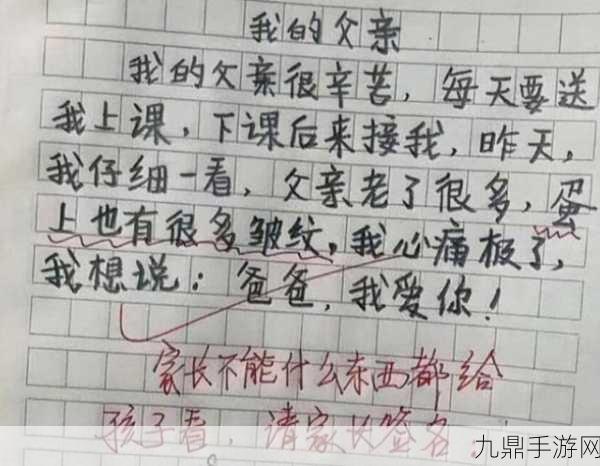 我的父亲
我的父亲很辛苦，每天要送
我上课，下课后来接我，昨天，
我仔细一看，父亲老了很多，蛋
上也有很多皱纹，我心痛极了，
我想说：爸爸，我爱你！
家长不能什么东西都给
孩子看，请家长签名。
九鼎手游网